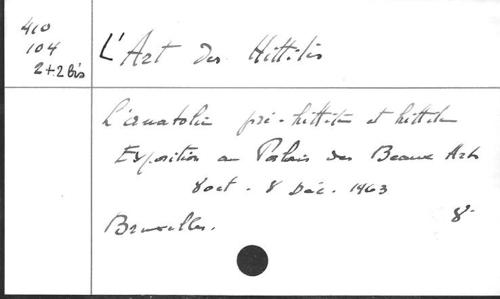 410
104
2+2 bis
L'Art des Hittites
L'anatolie pré-hittite et hittite
Exposition au Palais des Beaux Arts
8 oct. - 8 Déc. 1963
8°
Bruxelles.